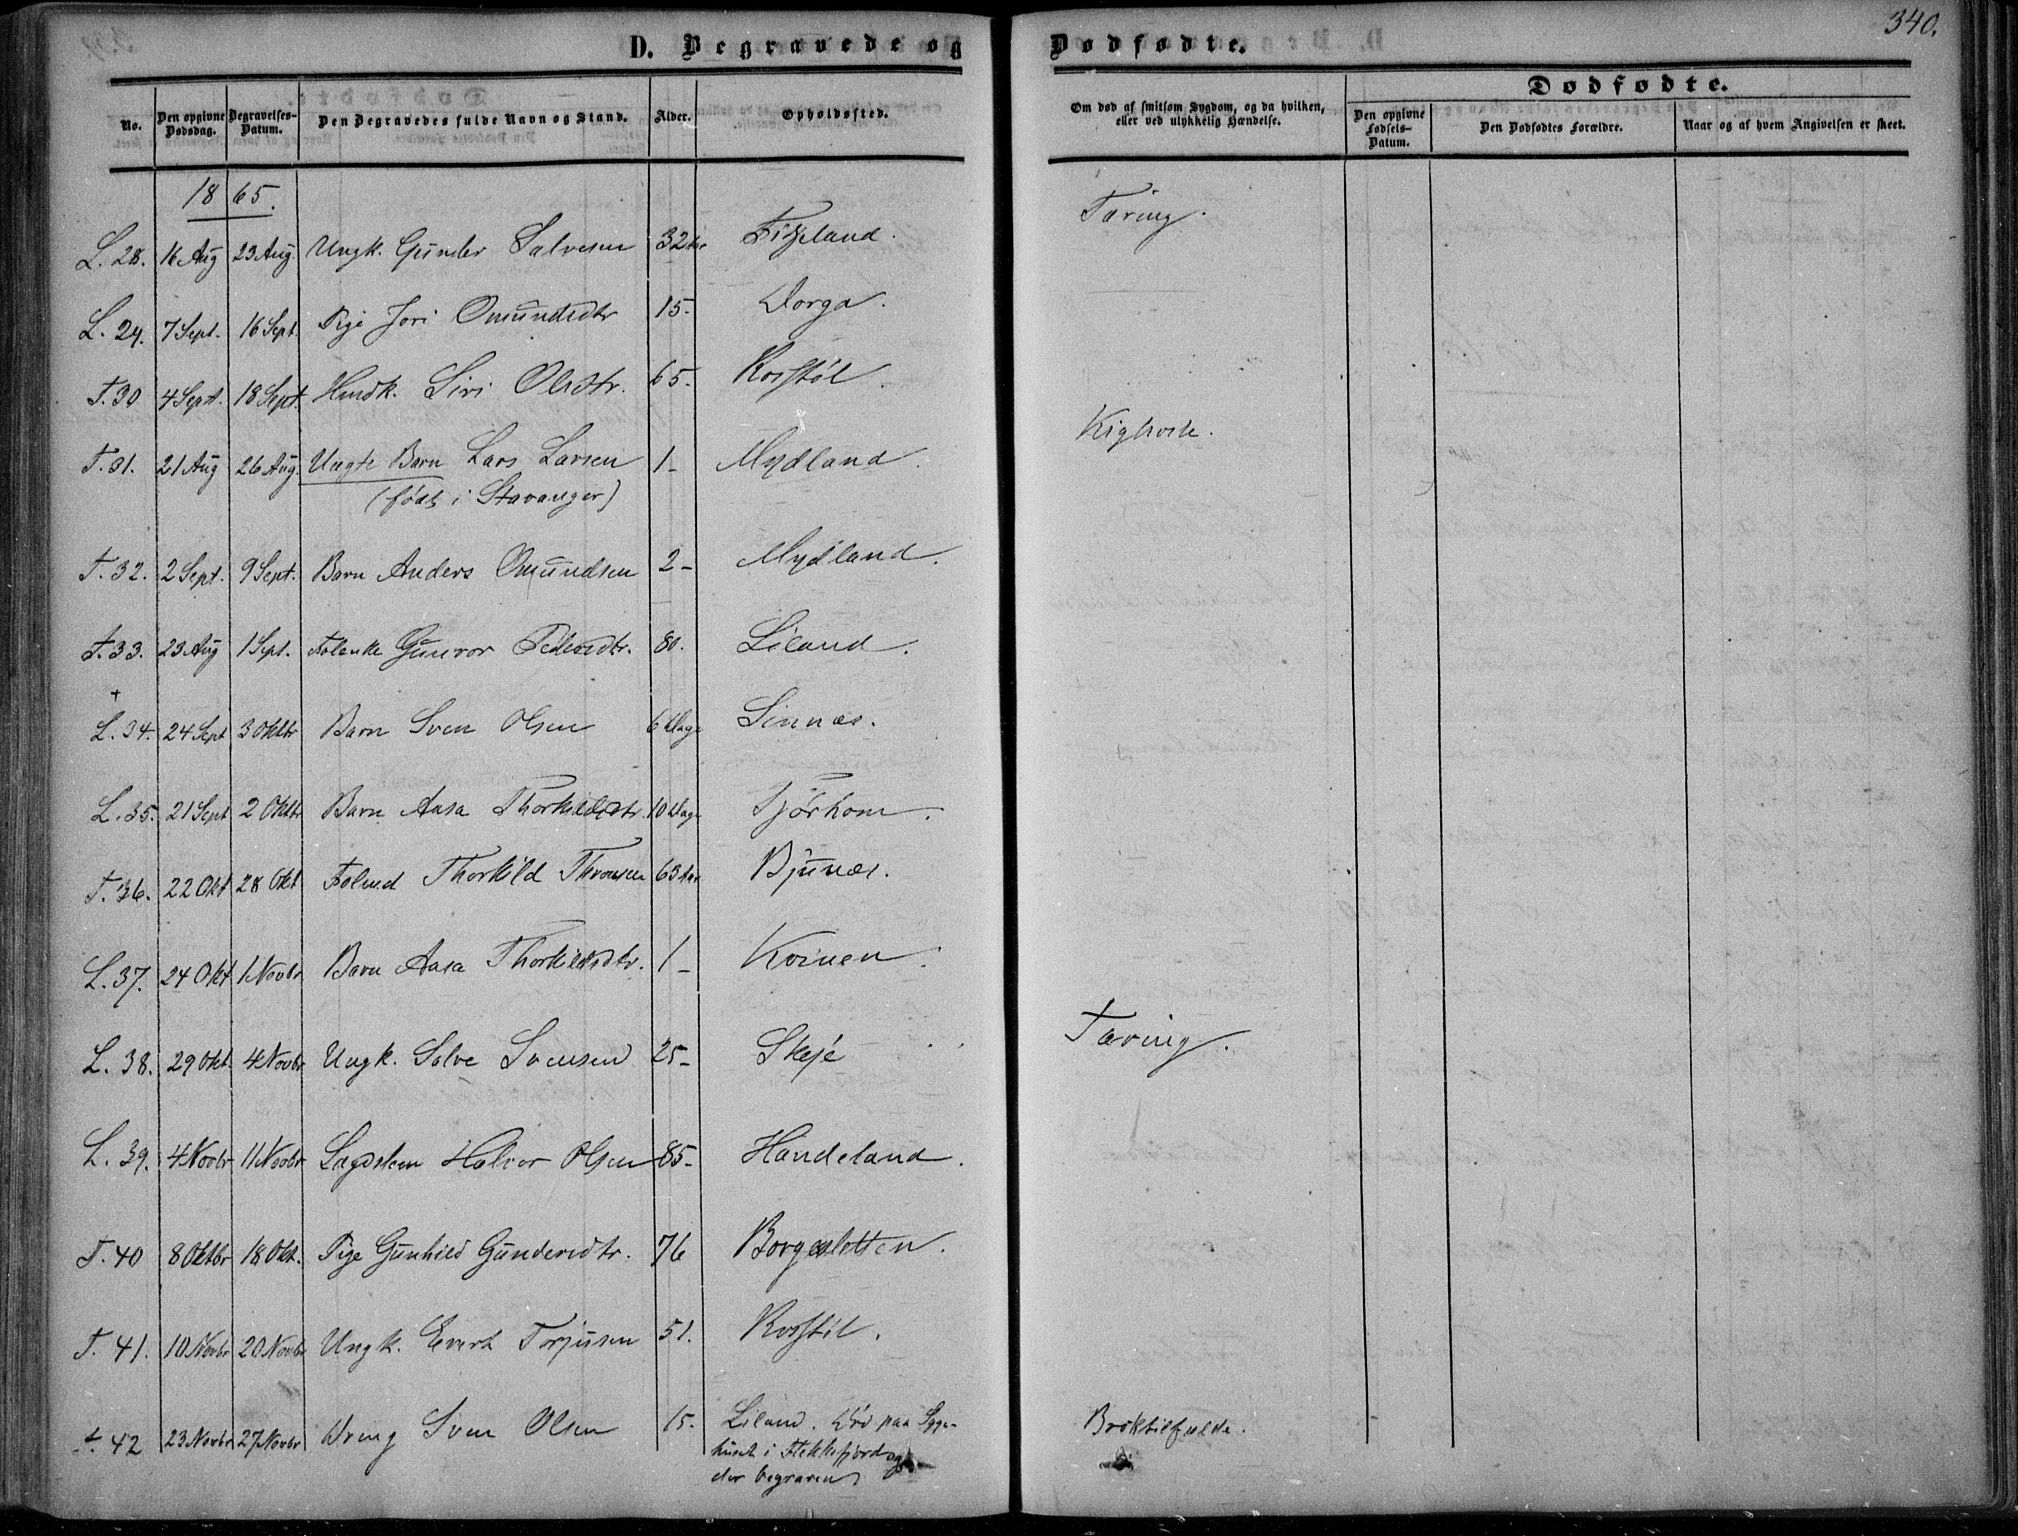 340.
D. Begravede og Dødfødte.
No. | Den opgivne Dødsdag. | Begravelses-Datum. | Den Begravedes fulde Navn og Stand. | Alder. | Opholdssted. | Om død af smitsom Sygdom, og da hvilken, eller ved ulykkelig Hændelse. | Dødfødte. | Den opgivne Fødsels-Datum. | Den Dødfødtes Forældre. | Naar og af hvem Angivelsen er skeet.
1865.
L. 28. 16 Aug 23 Aug. Ungk. Gunder Salvesen 32 Aar Fitjeland. Tæring.
L. 29. 7 Sept. 16 Sept. Pige Jori Omundsdtr 15- Dorga.
T. 30 4 Sept. 18 Sept. Hmdk. Siri Olsdtr. 65- Rosstøl.
T. 31. 21 Aug 26 Aug. Uægte Barn Lars Larsen 1- Mydland. Kighoste.
(født i Stavanger)
T. 32. 2 Sept. 9 Sept. Barn Anders Omundsen 2- Mydland.
T. 33. 23 Aug 1 Sept. Folenke Gunvor Pedersdtr. 80. Liland.
+
L. 34. 24 Sept 3 Oktbr Barn Sven Olsen 6 Dage Sinnæs.
L. 35. 21 Sept 2 Oktbr Barn Aasa Thorkildsdtr. 10 Dage Tjørhom.
T. 36. 22 Okt 28 Okt Folmd Thorkild Thronsen 63 Aar Bjunæs.
L. 37. 24 Okt 1 Novbr Barn Aasa Thorkildsdtr. 1- Kvinen.
L. 38. 29 Okt. 4 Novbr Ungk. Salve Svensen 25- Skeje Tæring.
L. 39. 4 Novbr 11 Novbr Lægdslem Halvor Olsen 85- Handeland.
T. 40 8 Oktbr 18 Okt. Pige Gunhild Gundersdtr. 76 Borgesletten.
T. 41. 10 Novbr 20 Novbr Ungk. Evert Torjusen 51. Rosstøl.
T. 42 23 Novbr 27 Novbr Dreng Sven Olsen 15. Liland. Død paa Syge- Broktilfælde.
huset i Flekkefjord og
der begraven